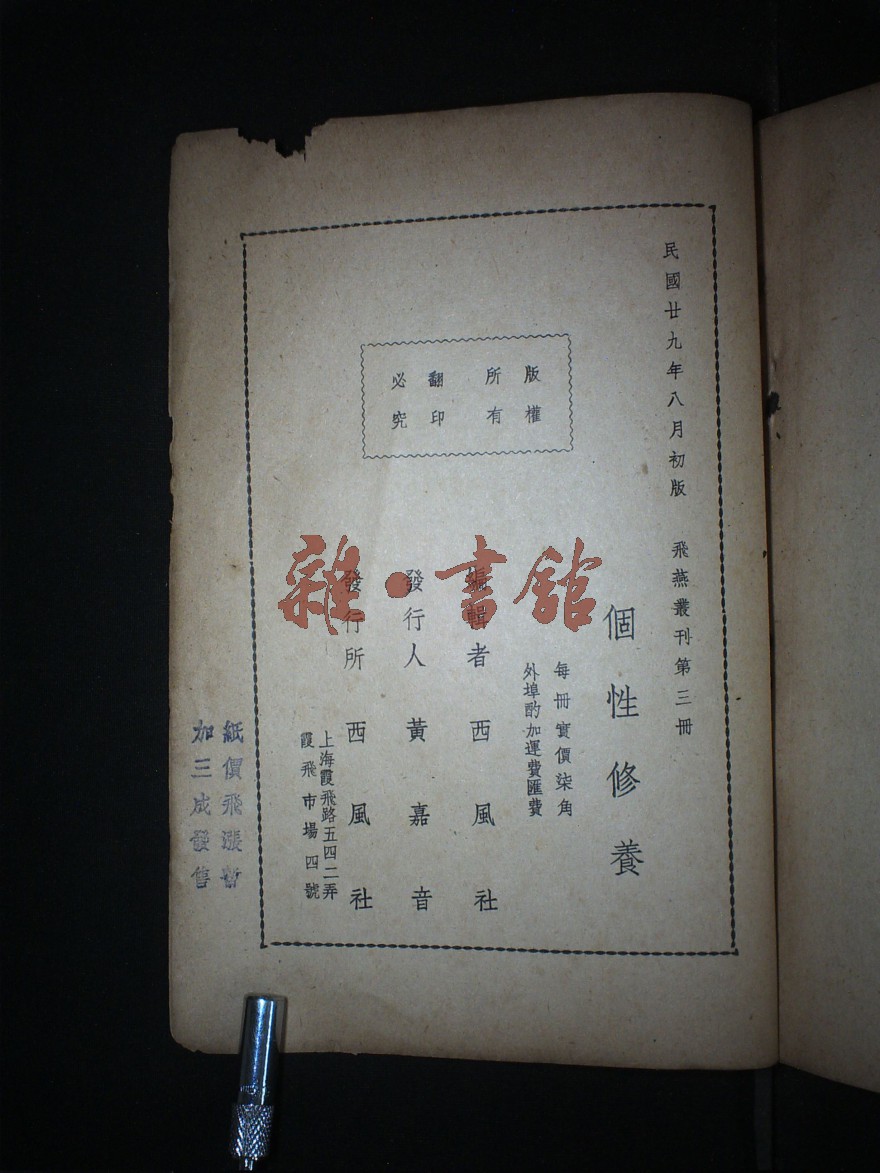 民國廿九年八月初版 飛燕叢刊第三冊
個性修養
每冊實價柒角
外埠酌加運費匯費
編輯者 西風社
發行人 黃嘉音
發行所 西風社
上海霞飛路五四二弄
霞飛市場四號
版權
所有
翻印
必究
紙價飛漲暫
加三成發售
雜·書館